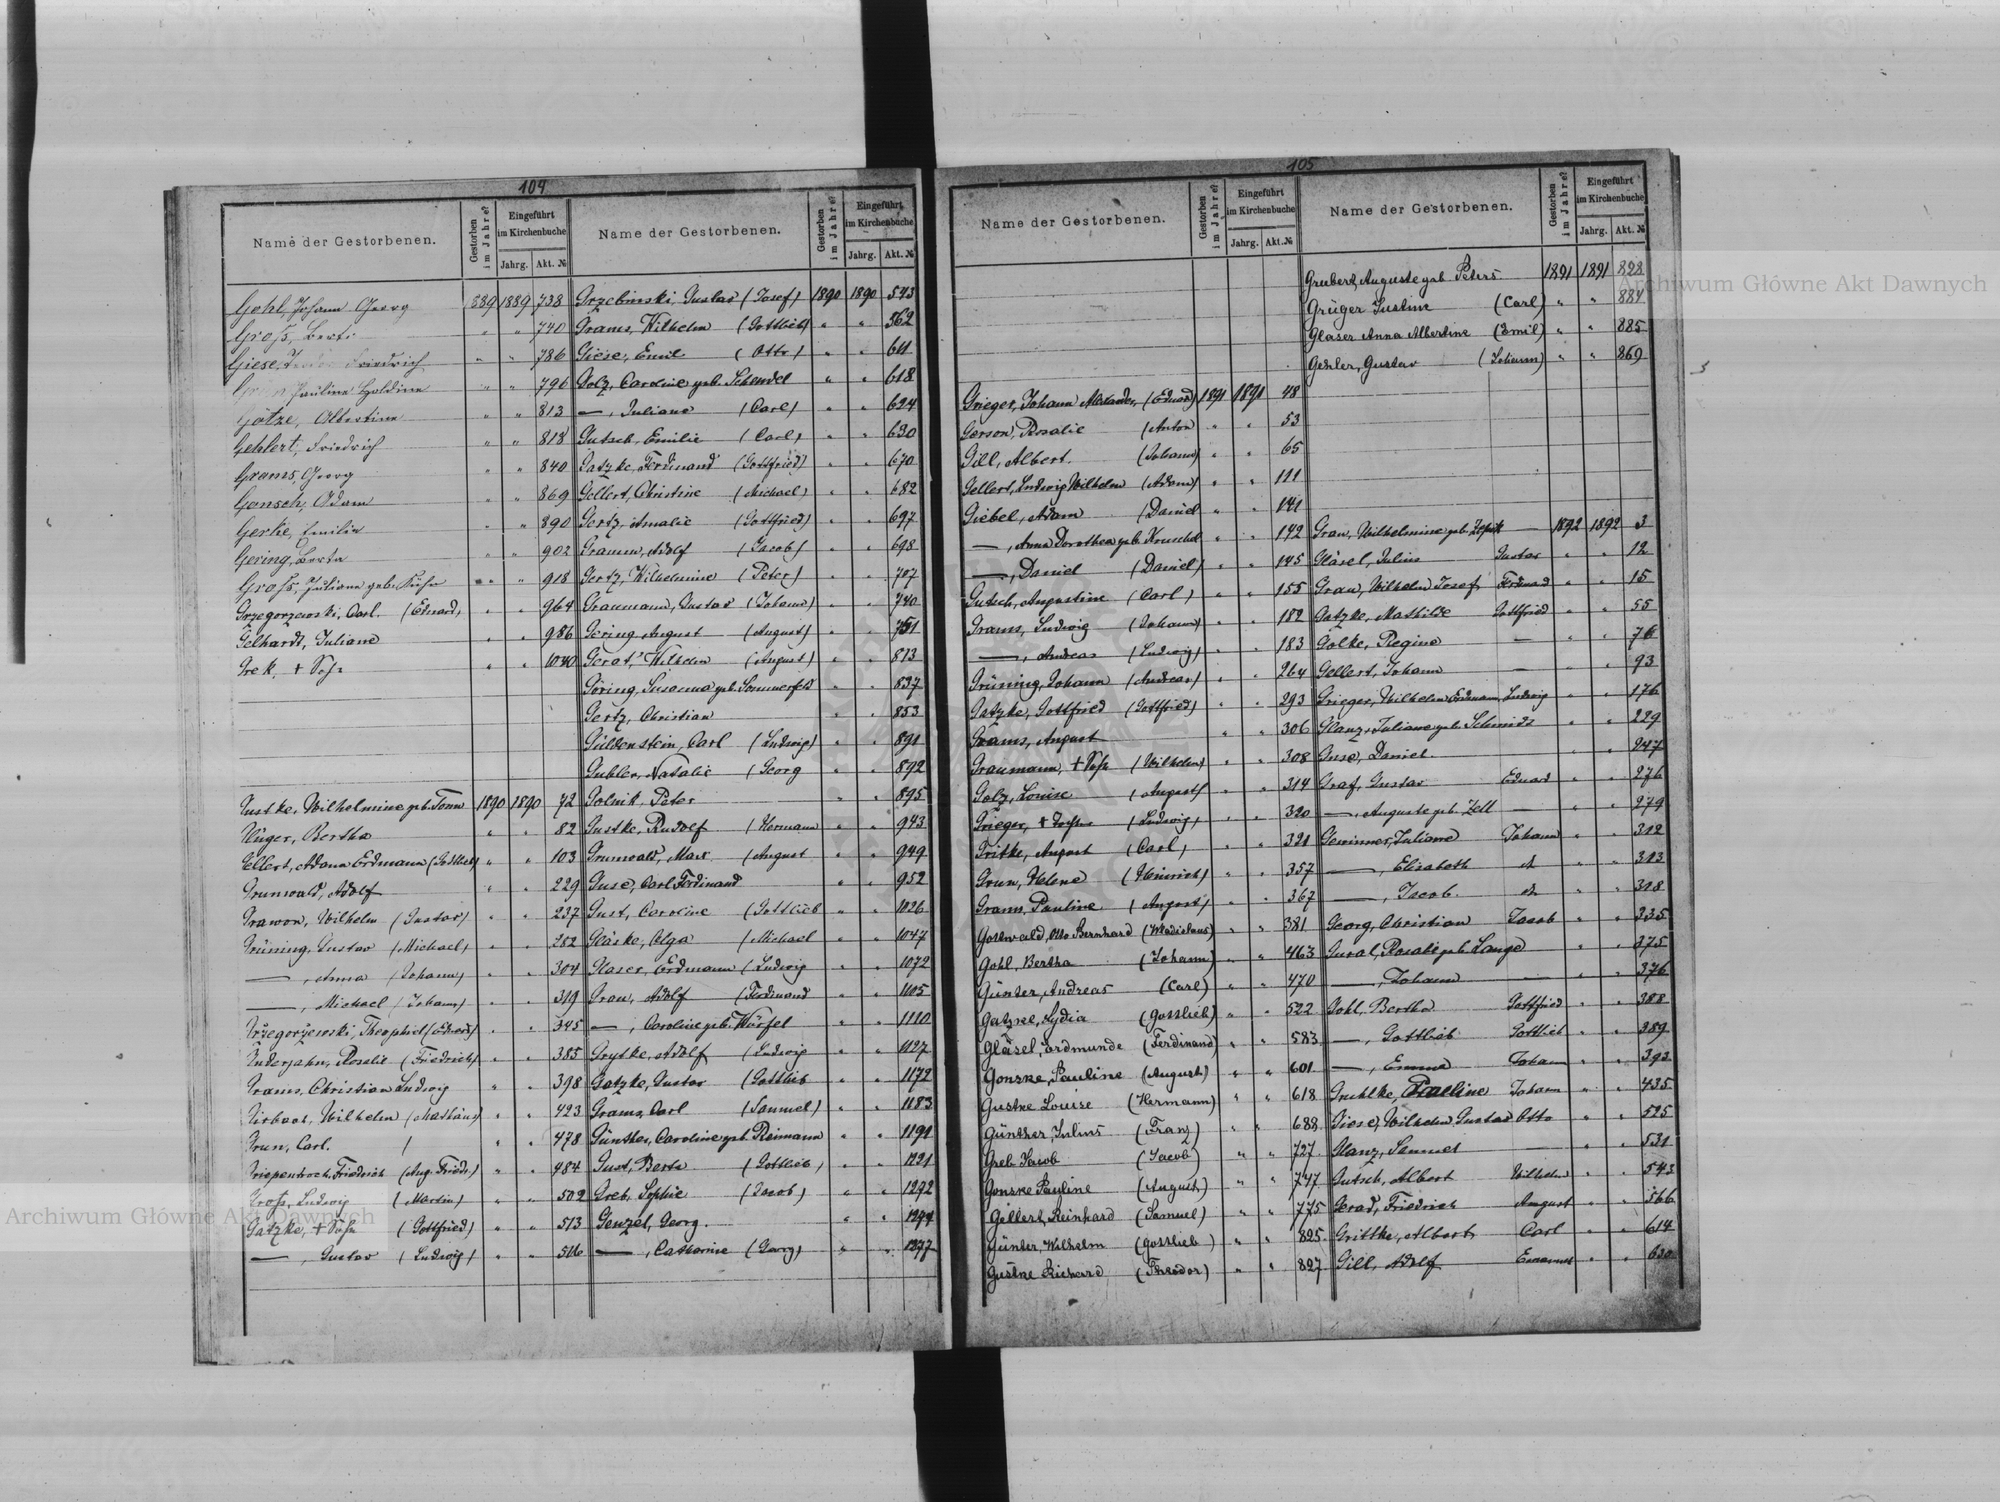 104
Name der Gestorbenen. Gestorben im Jahre? Eingeführt im Kirchenbuche Jahrg. Akt. №
Gohl, Johann Georg 1889 1889 738
Groß, " " 740
Giese, Friedrich " " 786
Pauline " " 796
Götze, Albertine " " 813
Gehlert, Friedrich " " 818
Grams, Georg " " 840
Gonsch, Adam " " 869
Gerke, Emilie " " 890
Gering, Berta " " 902
Groß, Juliane geb. " " 918
Grzegorzewski, Carl. (Eduard) " " 964
Gelhardt, Juliane " " 986
Grek, + Sohn " " 1040
Gustke, Wilhelmine geb. Tonn 1890 1890 72
Bertha " " 82
Gellert, Adam Erdmann (Gottlieb) " " 103
Grunwald, Adolf " " 229
Grawon, Wilhelm (Gustav) " " 237
Grüning, Gustav (Michael) " " 282
—, Anna (Johann) " " 304
—, Michael (Johann) " " 319
Grzegorzewski, Theophiel (Eduard) " " 345
Rosalie (Friedrich) " " 385
Grams, Christian Ludwig " " 398
Wilhelm (Mathias) " " 423
Grun, Carl. " " 478
Friedrich (Aug. Friedr.) " " 484
Groß, Ludwig (Martin) " " 502
Gatzke, + Sohn (Gottfried) " " 513
—, Gustav (Ludwig) " " 516
Name der Gestorbenen. Gestorben im Jahre? Eingeführt im Kirchenbuche Jahrg. Akt. №
Grzebinski, Gustav (Josef) 1890 1890 543
Grams, Wilhelm (Gottlieb) " " 562
Giese, Emil (Otto) " " 611
Golz, Caroline geb. Schendel " " 618
—, Juliane (Carl) " " 624
Gutsch, Emilie (Carl) " " 630
Gatzke, Ferdinand (Gottfried) " " 670
Gellert, Christine (Michael) " " 682
Gertz, Amalie (Gottfried) " " 697
Gramm, Adolf (Jacob) " " 698
Gertz, Wilhelmine (Peter) " " 707
Graumann, Gustav (Johann) " " 740
Gering, August (August) " " 751
Gerat, Wilhelm (August) " " 813
Göring, Susanna geb. Sommerfeld " " 837
Gertz, Christian " " 853
Güldenstein, Carl (Ludwig) " " 891
Gubler, Natalie (Georg " " 892
Golnik, Peter " " 895
Gustke, Rudolf (Hermann " " 943
Grunwald, Marie (August " " 949
Guse, Carl Ferdinand " " 952
Gust, Caroline (Gottlieb " " 1026
Gläske, Olga (Michael " " 1047
Glaser, Erdmann (Ludwig " " 1072
Grau, Adolf (Ferdinand " " 1105
—, Caroline geb. Würfel " " 1110
Grytke, Adolf (Ludwig " " 1127
Gatzke, Gustav (Gottlieb " " 1172
Grams, Carl (Samuel) " " 1183
Günther, Caroline geb. Reimann " " 1191
Gust, Berta (Gottlieb) " " 1221
Greb, Sophie (Jacob) " " 1292
Genzel, Georg. " " 1294
—, Catharine (Georg) " " 1377
105
Name der Gestorbenen. Gestorben im Jahre? Eingeführt im Kirchenbuche Jahrg. Akt. №
Grieger, Johann Alexander, (Eduard) 1891 1891 48
Gerson, Rosalie (Anton " " 53
Gill, Albert. (Johann) " " 65
Gellert, Ludwig Wilhelm (Adam) " " 111
Giebel, Adam (Daniel " " 141
—, Anna Dorothea geb. Kruschel " " 142
—, Daniel (Daniel) " " 145
Gutsch, Augustine (Carl) " " 155
Grams, Ludwig (Johann) " " 182
—, Andreas (Ludwig) " " 183
Grüning, Johann (Andreas) " " 264
Gatzke, Gottfried (Gottfried) " " 293
Grams, August " " 306
Graumann, + Sohn (Wilhelm) " " 308
Golz, Louise (August) " " 314
Grieger, + Tochter (Ludwig) " " 320
Gritke, August (Carl) " " 321
Grun, Helene (Heinrich) " " 357
Grams, Pauline (August) " " 367
Gottwald, Otto Bernhard (Wladislaus) " " 381
Gohl, Bertha (Johann) " " 463
Günter, Andreas (Carl) " " 470
Gatzke, Lydia (Gottlieb) " " 522
Gläsel, Erdmunde (Ferdinand) " " 583
Gonske, Pauline (August) " " 601
Gustke Louise (Hermann) " " 618
Günther, Julius (Franz) " " 688
Greb Jacob (Jacob) " " 727
Gonske Pauline (August) " " 747
Gellert, Reinhard (Samuel) " " 775
Günter, Wilhelm (Gottlieb) " " 825
Gustke Richard (Theodor) " " 827
Name der Gestorbenen. Gestorben im Jahre? Eingeführt im Kirchenbuche Jahrg. Akt. №
Grubert, Auguste geb Peters 1891 1891 828
Grüger Justine (Carl) " " 884
Glaser Anna Albertine (Emil) " " 885
Gesler, Gustav (Johann) " " 869
Grau, Wilhelmine geb. — 1892 1892 3
Gläsel, Julius Gustav " " 12
Grau, Wilhelm Josef Ferdinand " " 15
Gatzke, Mathilde Gottfried " " 55
Golke, Regine — " " 76
Gellert, Johann — " " 93
Grieger, Wilhelm Erdmann, Ludwig " " 176
Glanz, Juliane geb. Schmidt " " 229
Guse, Daniel. " " 247
Graf, Gustav Eduard " " 276
—, Auguste geb. Zell — " " 279
Gewinner, Juliane Johann " " 312
—, Elisabeth d. " " 313
—, Jacob. d. " " 318
Georg, Christian Jacob " " 335
Gural, Rosalie geb. Lange " " 375
—, Johann — " " 376
Gohl, Bertha Gottfried " " 388
—, Gottlieb Gottlieb " " 389
—, Emma Johann " " 392
Gruhlke, Pauline Johann " " 435
Giese, Wilhelm Gustav Otto " " 525
Glanz, Samuel — " " 531
Gutsch, Albert Wilhelm " " 543
Gerad, Friedrich August " " 566
Grittke, Albert Carl " " 614
Gill, Adolf Emanuel " " 630
Archiwum Główne Akt Dawnych
Archiwum Główne Akt Dawnych